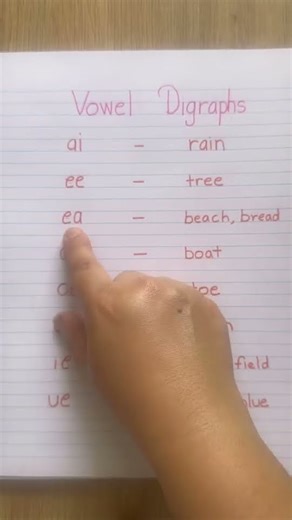 Vowel Digraphs
ai - rain
ee - tree
ea - beach, bread
- boat
toe
ie field
ue blue